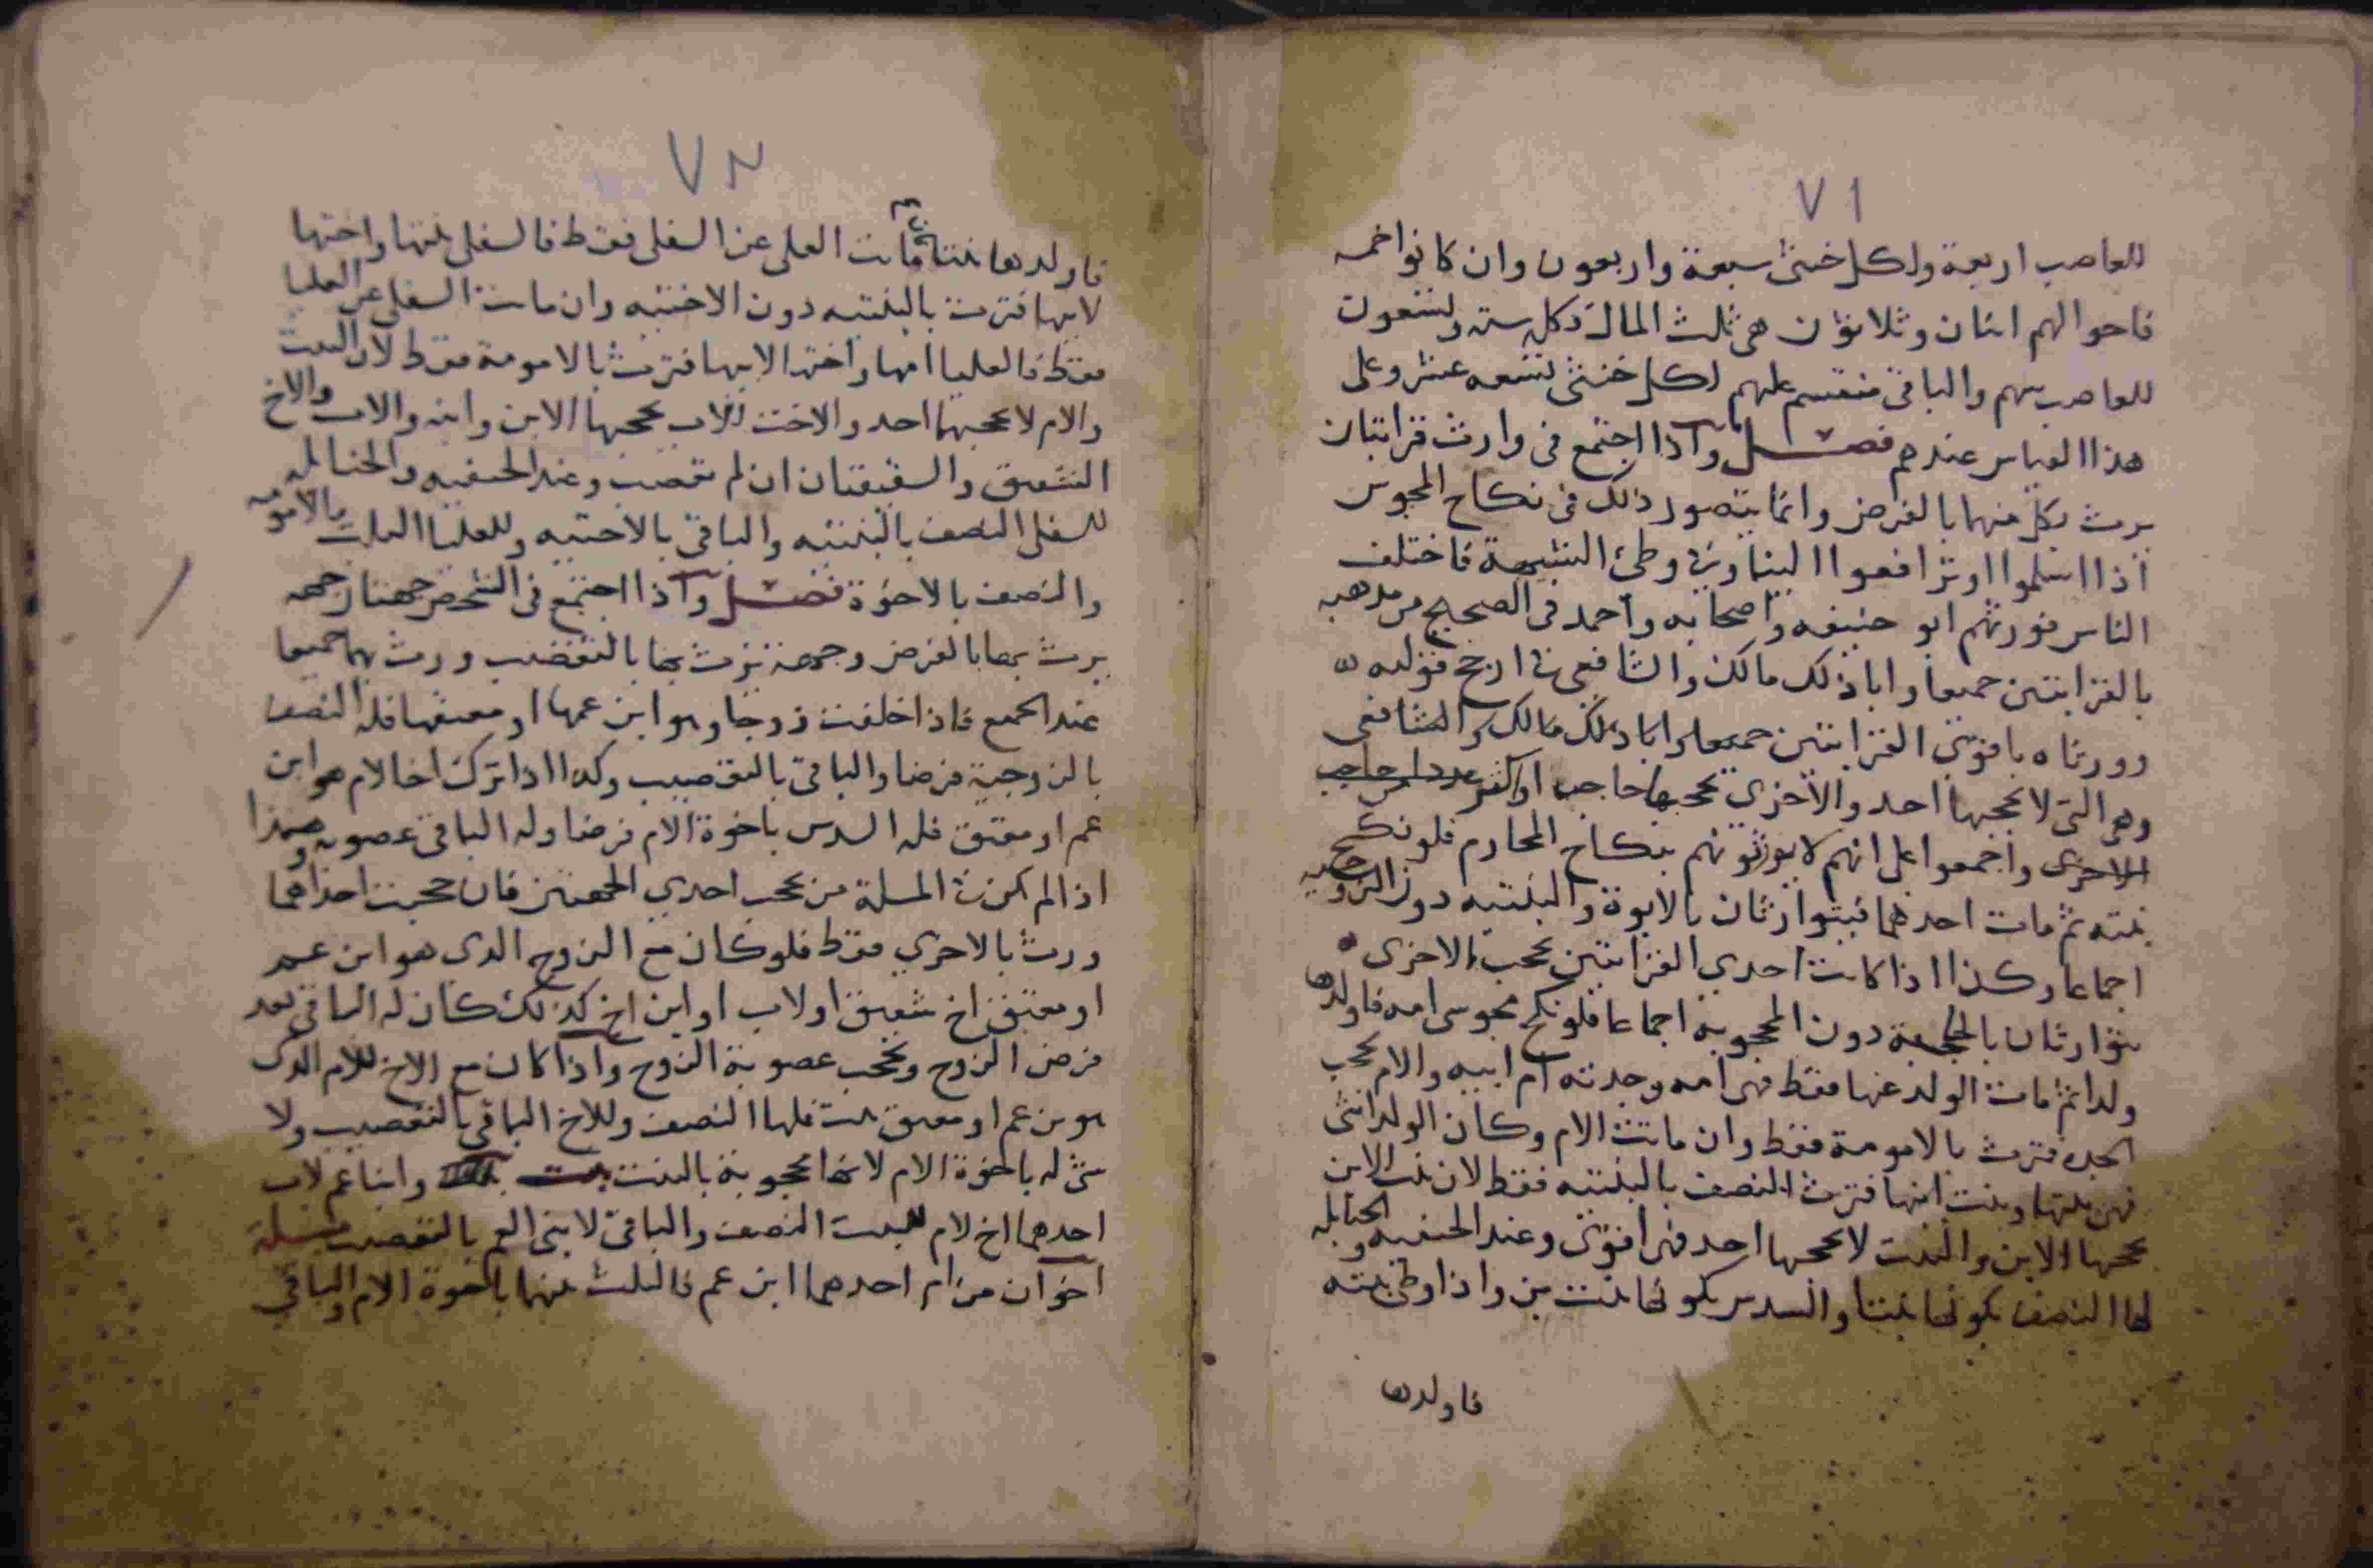 ٧١
للعاصب اربعة ولكل خنثى سبعة واربعون وان كانوا خمسه
فاحوالهم اثنان وثلاثون هى ثلث المال دكل سته وتسعون
للعاصب سهم والباقى منقسم عليهم لكل خنثى تسعه عشر وعلى
هذا القياس عندهم فصل واذا اجتمع فى وارث قرابتان
يرث بكل منهما بالفرض وانما يتصور ذلك فى نكاح المجوس
اذا اسلموا او ترافعوا الينا وفى وطئ الشبهة فاختلف
الناس فورثهم ابو حنيفه واصحابه واحمد فى الصحيح من مذهبه
بالقرابتين جميعا وابا ذلك مالك والشافعى فى ارجح قوليه
وورثاه باقوى القرابتين جميعا وابا ذلك مالك والشافعى
وهى التى لا يحجبها احد والاخرى يحجبها حاجب او اكثر عددا حاجب
الاخرى واجمعوا على انهم لا يورثونهم بنكاح المحارم فلو نكح
بنته ثم مات احدهما فيتوارثان بالابوة والبنتيه دون الزوجيه
اجماعا وكذا اذا كانت احدى القرابتين تحجب الاخرى
يتوارثان بالحاجبة دون المحجوبه اجماعا فلو نكح مجوسى امه فاولدها
ولدا ثم مات الولد عنها فقط فهى امه وجدته ام ابيه والام تحجب
الجده فترث بالامومة فقط وان ماتت الام وكان الولد انثى
فهى بنتها وبنت ابنها فترث النصف بالبنتيه فقط لان بنت الابن
يحجبها الابن والبنت لا يحجبها احد فهى اقوى وعند الحنفيه والحنابله
لها النصف بكونها بنتا والسدس بكونها بنت بن واذا وطئ بنته
فاولدها
٧٢
فاولدها بنتا ثم ماتت العلى عن السفلى فقط فالسفلى بنتها واختها
لابيها فترث بالبنتيه دون الاختيه وان ماتت السفلى عن العليا
فقط فالعليا امها واختها لابيها فترث بالامومة فقط لان البنت
والام لا يحجبهما احد والاخت للاب يحجبها الابن وابنه والاب والاخ
الشقيق والشقيقتان ان لم تعصب وعند الحنفيه والحنابله
للسفلى النصف بالبنتيه والباقى بالاختيه وللعليا الثلث بالامومه
والنصف بالاخوة فصل واذا اجتمع فى الشخص جهتا ارث جهه
يرث بها بالفرض وجهة يرث بها بالتعصيب ورث بهما جميعا
عند الجميع فاذا خلفت زوجا وهو ابن عمها او معتقها فله النصف
بالزوجية فرضا والباقى بالتعصيب وكذا اذا ترك اخا لام هو ابن
عم او معتق فله السدس باخوة الام فرضا وله الباقى عصوبه وهذا
اذا لم يكن فى المسلة من يحجب احدى الجهتين فان حجبت احداهما
ورث بالاخرى فقط فلو كان مع الزوج الذى هو ابن عم
او معتق اخ شقيق او لاب او ابن اخ كذلك كان له الباقى بعد
فرض الزوج وتحجب عصوبة الزوج واذا كان مع الاخ للام الذى
هو بن عم او معتق بنت فلها النصف وللاخ الباقى بالتعصيب ولا
شئ له باخوة الام لانها محجوبة بالبنت وابنا عم لاب
احدهما اخ لام للبنت النصف والباقى لابنى العم بالتعصيب مسلة
اخوان من ام احدهما ابن عم فالثلث بينهما باخوة الام والباقى